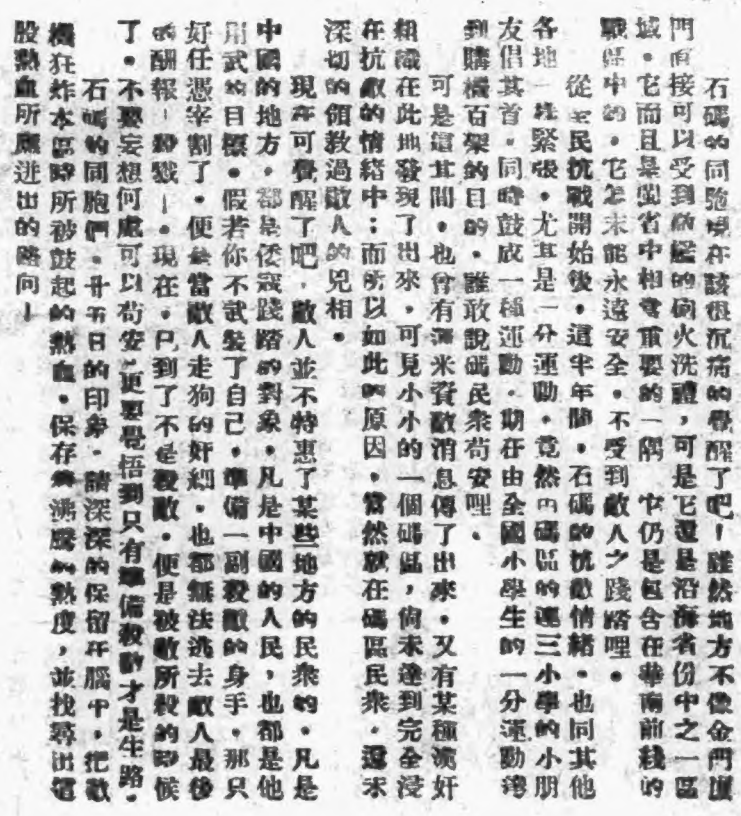 石碼的同胞現在該很沉痛的覺醒了吧！雖然地方不像金門廈
門直接可以受到敵艦的砲火洗禮，可是它還是沿海省份中之一區
域。它而且是閩省中相當重要的一隅 它仍是包含在華南前綫的
戰區中的。它怎末能永遠安全。不受到敵人之踐踏哩。
從全民抗戰開始後。這半年間。石碼的抗敵情緒。也同其他
各地一樣緊張。尤其是一分運動。竟然由碼區的連三小學的小朋
友倡其首。同時鼓成一種運動。期在由全國小學生的一分運動
到購機百架的目的。誰敢說碼民衆苟安哩。
可是這其間。也曾有 米資敵消息傳了出來。又有某種漢奸
組織在此地發現了出來，可見小小的一個碼區，尙未達到完全浸
在抗敵的情緒中；而所以如此的原因。當然就在碼區民衆。還未
深切的領教過敵人的兇相。
現在可覺醒了吧，敵人並不特惠了某些地方的民衆的。凡是
中國的地方。都是倭寇踐踏的對象。凡是中國的人民，也都是他
用武的目標。假若你不武裝了自己。準備一副殺敵的身手。那只
好任憑宰割了。便 當敵人走狗的奸細。也都無法逃去敵人最後
的酬報！殺戮！。現在。已到了不是殺敵。便是被敵所殺的時候
了。不要妄想何處可以苟安 更要覺悟到只有準備殺敵才是生路。
石碼的同胞們。廿五日的印象。請深深的保留在腦中。把敵
機狂炸本區時所被鼓起的熱血。保存 沸騰的熱度，並找尋出這
股熱血所應迸出的路向！